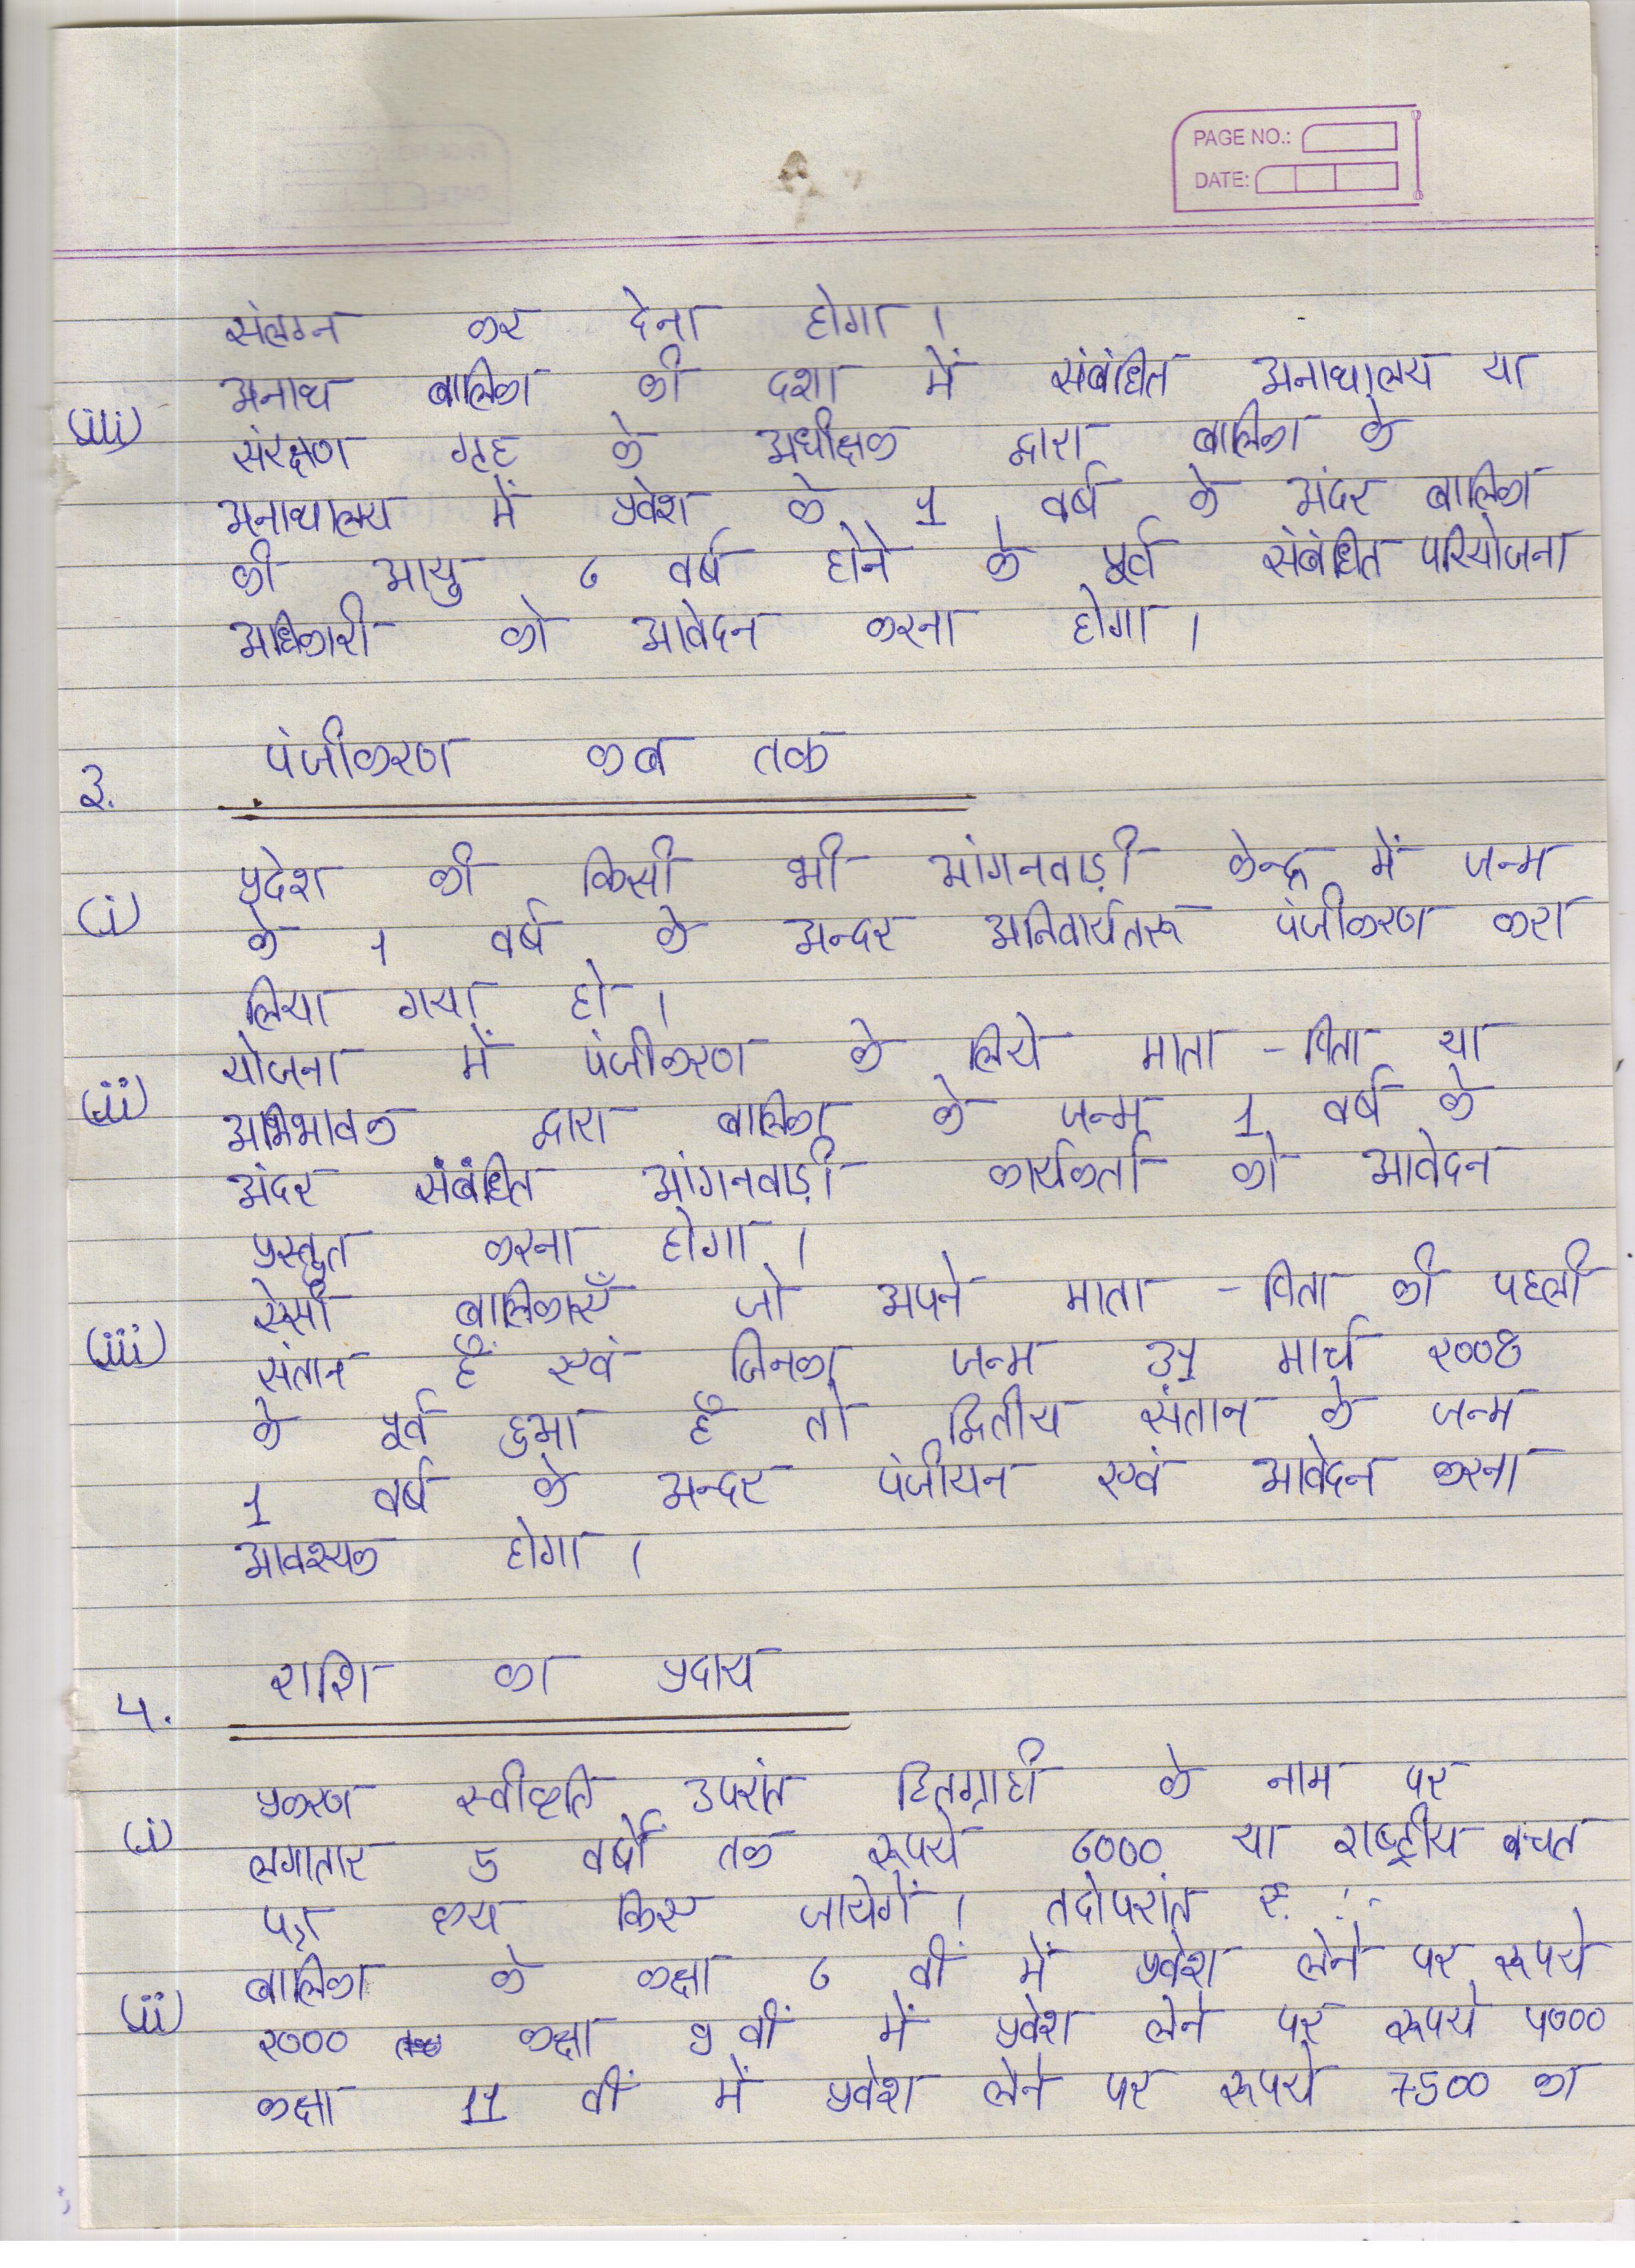 PAGE NO.:
DATE:
संलग्न कर देना होगा ।
(iii) अनाथ बालिका की दशा में संबंधित अनाथालय या
संरक्षण गृह के अधीक्षक द्वारा बालिका के
अनाथालय में प्रवेश के 1 वर्ष के अंदर बालिका
की आयु ८ वर्ष होने के पूर्व संबंधित परियोजना
अधिकारी को आवेदन करना होगा ।
३. पंजीकरण कब तक
(i) प्रदेश की किसी भी आंगनवाड़ी केन्द्र में जन्म
के 1 वर्ष के अन्दर अनिवार्यतरू पंजीकरण करा
लिया गया हो ।
(ii) योजना में पंजीकरण के लिये माता - पिता या
अभिभावक द्वारा बालिका के जन्म 1 वर्ष के
अंदर संबंधित आंगनवाड़ी कार्यकर्ता को आवेदन
प्रस्तुत करना होगा ।
(iii) ऐसी बालिकाएँ जो अपने माता - पिता की पहली
संतान हैं एवं जिनका जन्म ३1 मार्च २००8
के पूर्व हुआ है तो द्वितीय संतान के जन्म
1 वर्ष के अन्दर पंजीयन एवं आवेदन करना
आवश्यक होगा ।
4. राशि का प्रदाय
(i) प्रकरण स्वीकृति उपरांत हितग्राही के नाम पर
लगातार 5 वर्षों तक रूपये ८००० या राष्ट्रीय बचत
पत्र क्रय किए जायेगें । तदोपरांत रु.
(ii) बालिका के कक्षा ८ वीं में प्रवेश लेने पर रूपये
२००० कक्षा 9 वीं में प्रवेश लेने पर रूपये 4०००
कक्षा 11 वीं में प्रवेश लेने पर रूपये 7500 का